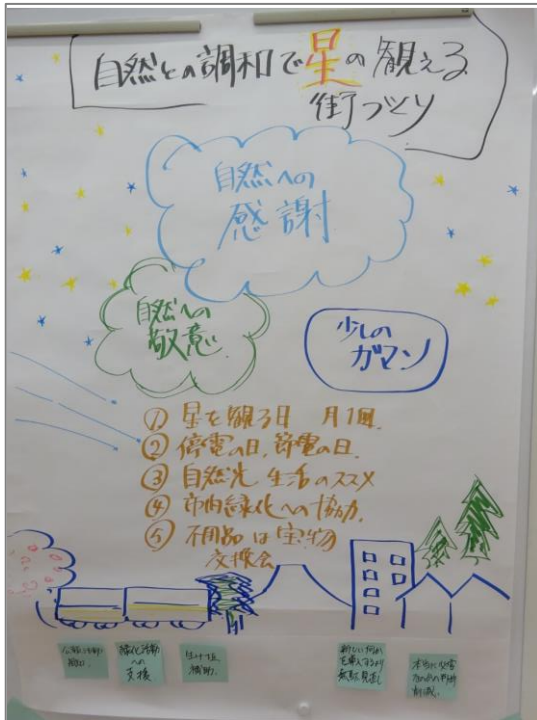 自然との調和で星の観える
街づくり
自然への
感謝
自然への
敬意
少しの
ガマン
① 星を観る日 月1回.
② 停電の日,節電の日.
③ 自然光 生活のススメ
④ 市内緑化への協力.
⑤ 不用品は宝物
交換会
緑化活動
への
支援
補助.
新しい何か
を導入するより
見直し
削減.